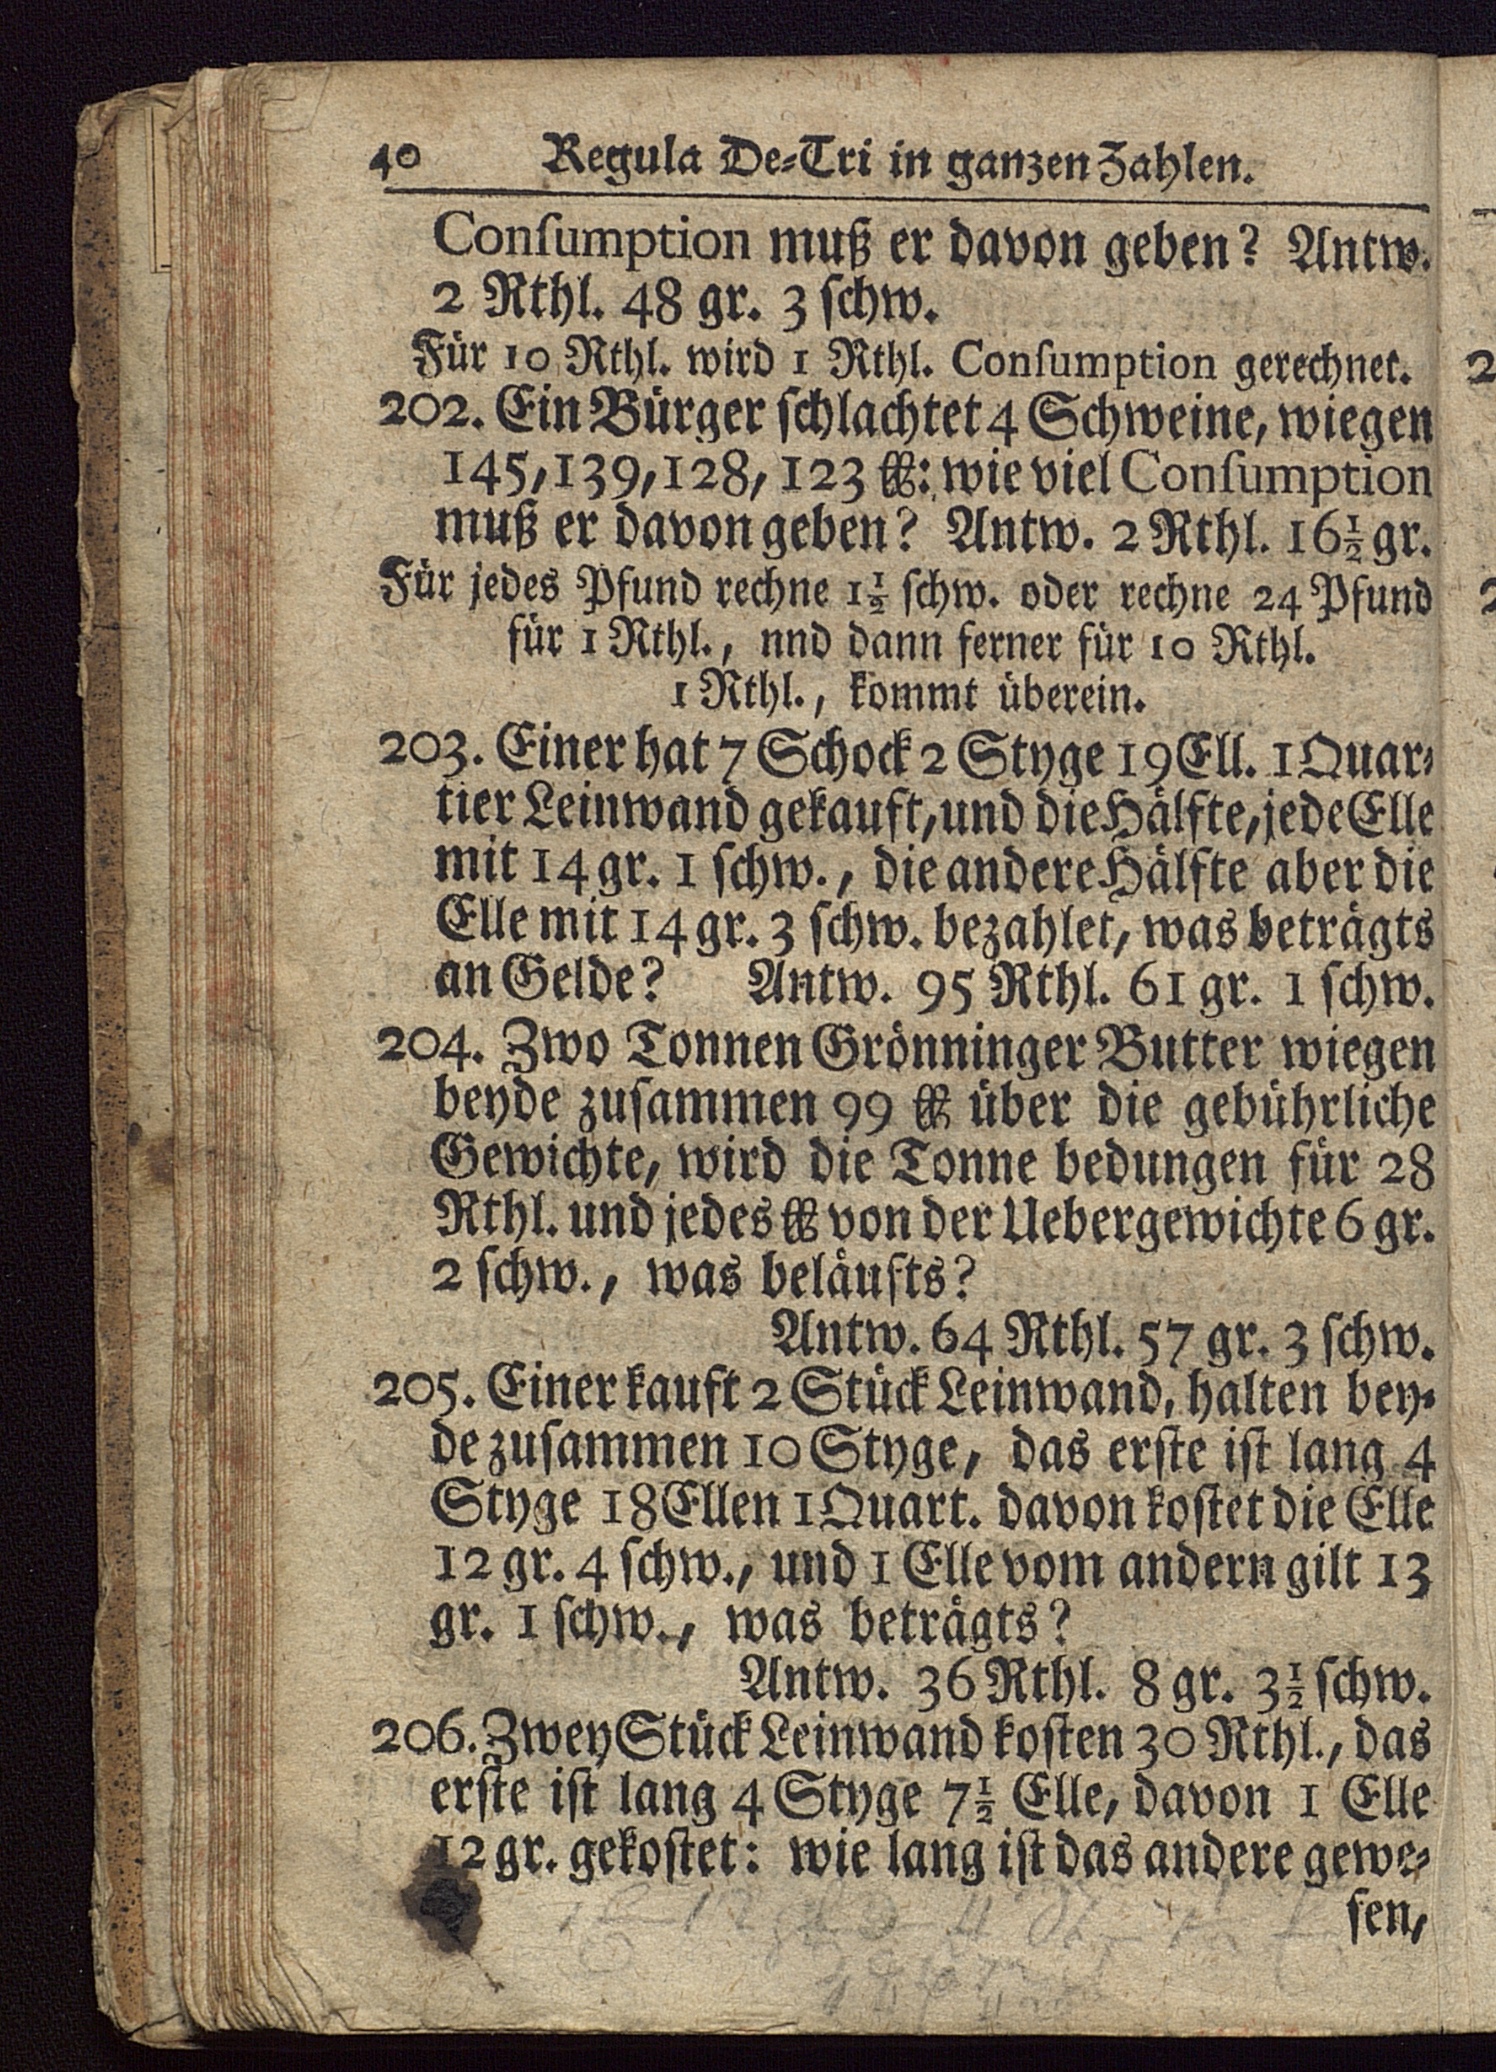 40 Regula De-Tri in ganzen Zahlen.
Conſumption muß er davon geben? Antw.
2 Rthl. 48 gr. 3 ſchw.
Für 10 Rthl. wird 1 Rthl. Conſumption gerechnet.
202. Ein Bürger ſchlachtet 4 Schweine, wiegen
145, 139, 128, 123 ℔: wie viel Conſumption
muß er davon geben? Antw. 2 Rthl. 16½ gr.
Für jedes Pfund rechne 1½ ſchw. oder rechne 24 Pfund
für 1 Rthl., nnd dann ferner für 10 Rthl.
1 Rthl., kommt überein.
203. Einer hat 7 Schock 2 Styge 19 Ell. 1 Quar-
tier Leinwand gekauft, und die Hälfte, jede Elle
mit 14 gr. 1 ſchw., die andere Hälfte aber die
Elle mit 14 gr. 3 ſchw. bezahlet, was beträgts
an Gelde? Antw. 95 Rthl. 61 gr. 1 ſchw.
204. Zwo Tonnen Grönninger Butter wiegen
beyde zuſammen 99 ℔ über die gebührliche
Gewichte, wird die Tonne bedungen für 28
Rthl. und jedes ℔ von der Uebergewichte 6 gr.
2 ſchw., was beläufts?
Antw. 64 Rthl. 57 gr. 3 ſchw.
205. Einer kauft 2 Stück Leinwand, halten bey-
de zuſammen 10 Styge, das erſte iſt lang 4
Styge 18 Ellen 1 Quart. davon koſtet die Elle
12 gr. 4 ſchw., und 1 Elle vom andern gilt 13
gr. 1 ſchw., was beträgts?
Antw. 36 Rthl. 8 gr. 3½ ſchw.
206. Zwey Stück Leinwand koſten 30 Rthl., das
erſte iſt lang 4 Styge 7½ Elle, davon 1 Elle
12 gr. gekoſtet: wie lang iſt das andere gewe-
ſen,